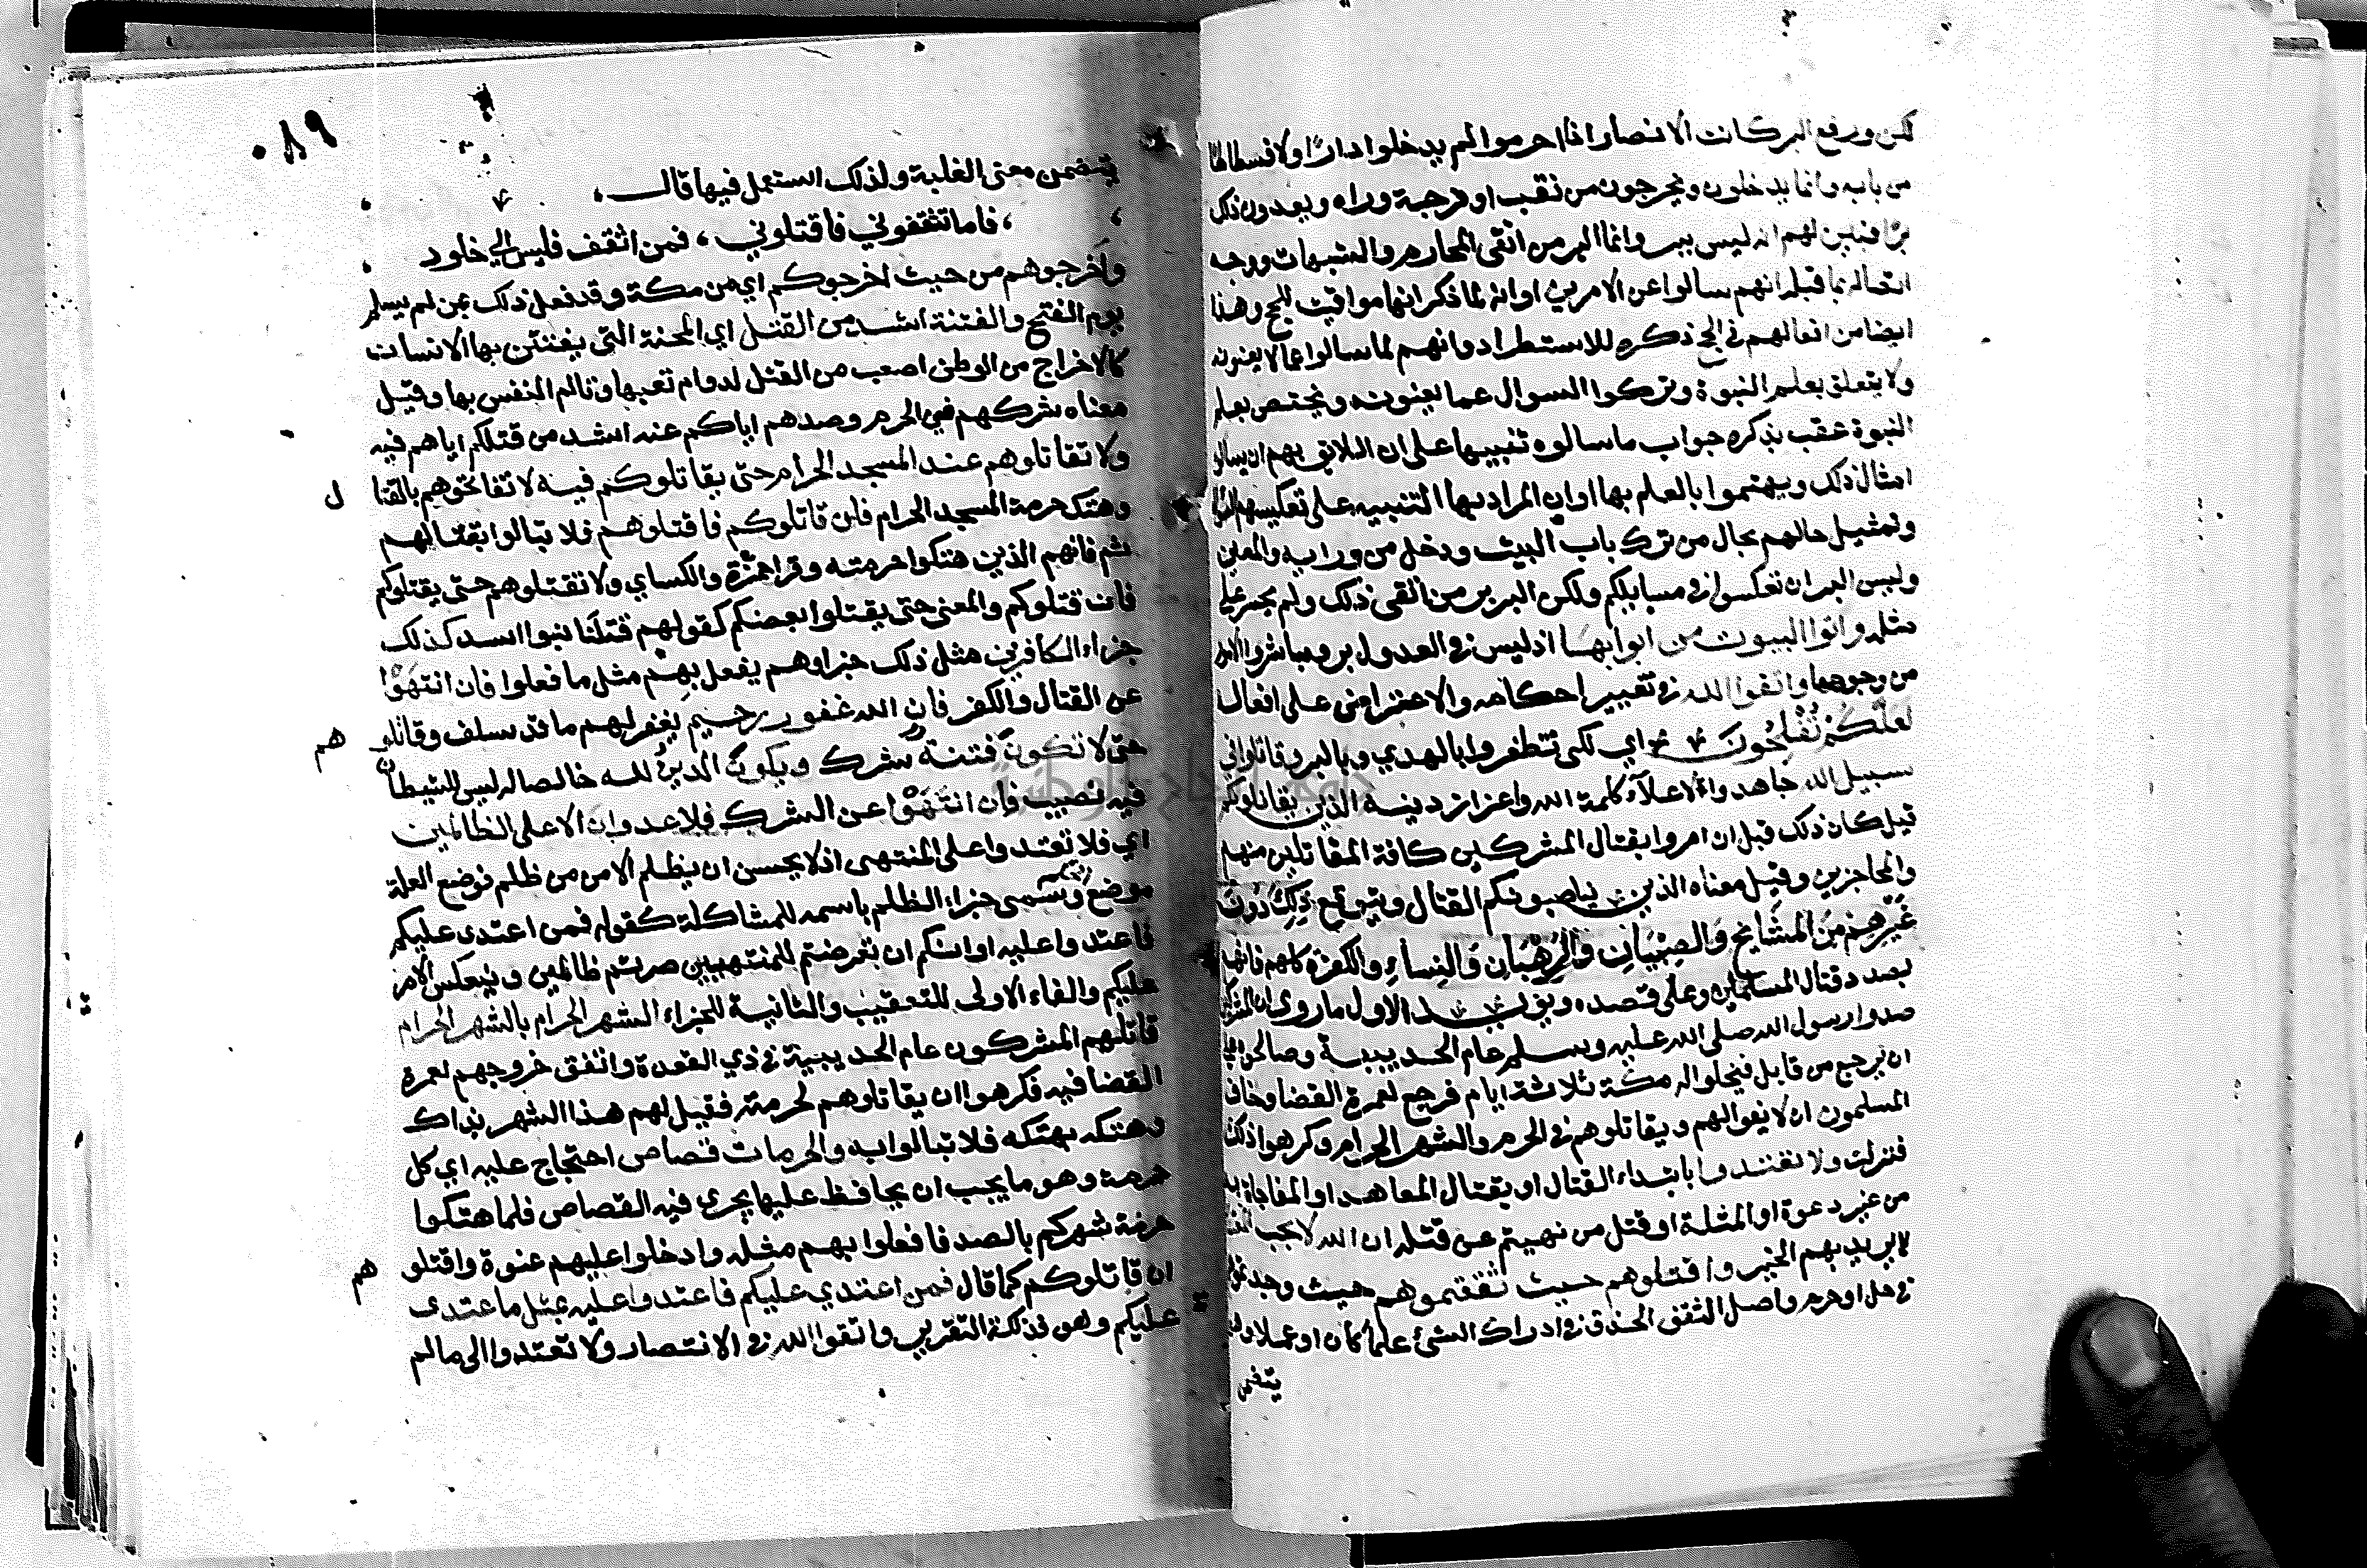 لكن ورفع البر كانت الانصار اذا احرموا لم يدخلوا دارا ولا فسطاطا
من بابه وانما يدخلون ويخرجون من نقب او فرجة وراه ويعدون ذلك
برا فبين لهم انه ليس ببر وانما البر من اتقى المحارم والشبهات ووجه
اتصاله بما قبله انهم سالوا عن الامرين او انه لما ذكر انها مواقيت للحج وهذا
ايضا من افعالهم في الحج ذكره للاستطراد وانهم لما سالوا عما لا يعنونه
ولا يتعلق بعلم النبوة وتركوا السوال عما يعنونه ويختص بعلم
النبوة عقب بذكره جواب ما سالوه تنبيها على ان اللائق بهم ان يسالوا
امثال ذلك ويهتموا بالعلم بها او ان المراد بها التنبيه على تعكيسهم
وتمثيل حالهم بحال من ترك باب البيت ودخل من ورايه والمعنى
وليس البر ان تعكسوا في مسايلكم ولكن البر بر من اتقى ذلك ولم يجسر على
مثله واتوا البيوت من ابوابها اذ ليس في العدول بر وباشروا الامور
من وجوهها واتقوا الله في تغيير احكامه والاعتراض على افعاله
لَعَلَّكُمْ تُفْلِحُونَ اي لكي تظفروا بالهدي وبالبر وقاتلوا في
سبيل الله جاهدوا لاعلاء كلمة الله واعزاز دينه الذين يقاتلونكم
قيل كان ذلك قبل ان امروا بقتال المشركين كافة المقاتلين منهم
والمحاجزين وقيل معناه الذين يناصبونكم القتال ويتوقع ذَلِكَ دون
غَيْرِهِمْ مِنَ المَشَايخِ وَالصِبْيَانِ وَالرُهْبَانِ وَالنِساءِ والكفرة كلهم فانهم
بصدد قتال المسلمين وعلى قصده ويؤيد الاول ما روى ان المشركين
صدوا رسول الله صلى الله عليه وسلم عام الحديبية وصالحوه
ان يرجع من قابل فيخلوا له مكة ثلاثة ايام فرجع لعمرة القضا وخاف
المسلمون ان لا يفوا لهم ويقاتلوهم في الحرم والشهر الحرام وكرهوا ذلك
فنزلت ولا تعتدوا بابتداء القتال او بقتال المعاهد او المفاجاة به
من غير دعوة او المثلة او قتل من نهيتم عن قتله ان الله لا يحب
لا يريد بهم الخير واقتلوهم حيث ثقفتموهم حيث وجدتموهم
في حل او حرم واصل الثقف الحذق في ادراك الشئ علما كان او عملا
يتضمن
٠٨٩
يتضمن معنى الغلبة ولذلك استعمل فيها قال
فاما تثقفوني فاقتلوني ، فمن اثقف فليس الى خلود
واخرجوهم من حيث اخرجوكم اي من مكة وقد فعل ذلك بمن لم يسلم
يوم الفتح والفتنة اشد من القتل اي المحنة التي يفتتن بها الانسان
كالاخراج من الوطن اصعب من القتل لدوام تعبها وتالم النفس بها وقيل
معناه شركهم في الحرم وصدهم اياكم عنه اشد من قتلكم اياهم فيه
ولا تقاتلوهم عند المسجد الحرام حتى يقاتلوكم فيه لا تفاتحوهم بالقتا ل
وهتك حرمة المسجد الحرام فان قاتلوكم فاقتلوهم فلا تبالوا بقتالهم
ثم فانهم الذين هتكوا حرمته وقرا حمزة والكساي ولا تقتلوهم حتى يقتلوكم
فان قتلوكم والمعنى حتى يقتلوا بعضكم كقولهم قتلنا بنوا اسد كذلك
جزاء الكافرين مثل ذلك جزاوهم يفعل بهم مثل ما فعلوا فان انتهَوْا
عن القتال والكفر فان الله غفور رحيم يغفر لهم ما قد سلف وقاتلو هم
حتى لا تكون فتنة شرك ويكون الدين لله خالصا له ليس للشيطان
فيه نصيب فان انتَهَوْا عن الشرك فلا عدوان الا على الظالمين
اي فلا تعتدوا على المنتهى اذ لا يحسن ان يظلم الا من من ظلم فوضع العلة
موضع الحكم وسمى جزاء الظلم باسمه للمشاكلة كقوله فمن اعتدى عليكم
فاعتدوا عليه او انكم ان تعرضتم للمنتهيين صرتم ظالمين وينعكس الامر
عليكم والفاء الاولى للتعقيب والثانية للجزاء الشهر الحرام بالشهر الحرام
قاتلهم المشركون عام الحديبية في ذي القعدة واتفق خروجهم لعمرة
القضا فيه فكرهوا ان يقاتلوهم لحرمته فقيل لهم هذا الشهر بذاك
وهتكه بهتكه فلا تبالوا به والحرمات قصاص احتجاج عليه اي كل
حرمة وهو ما يجب ان يحافظ عليها يجرى فيه القصاص فلما هتكوا
حرمة شهركم بالصد فافعلوا بهم مثله وادخلوا عليهم عنوة واقتلو هم
ان قاتلوكم كما قال فمن اعتدي عليكم فاعتدوا عليه بمثل ما اعتدى
عليكم وهى فذلكة التقرير واتقوا الله في الانتصار ولا تعتدوا الى مالم